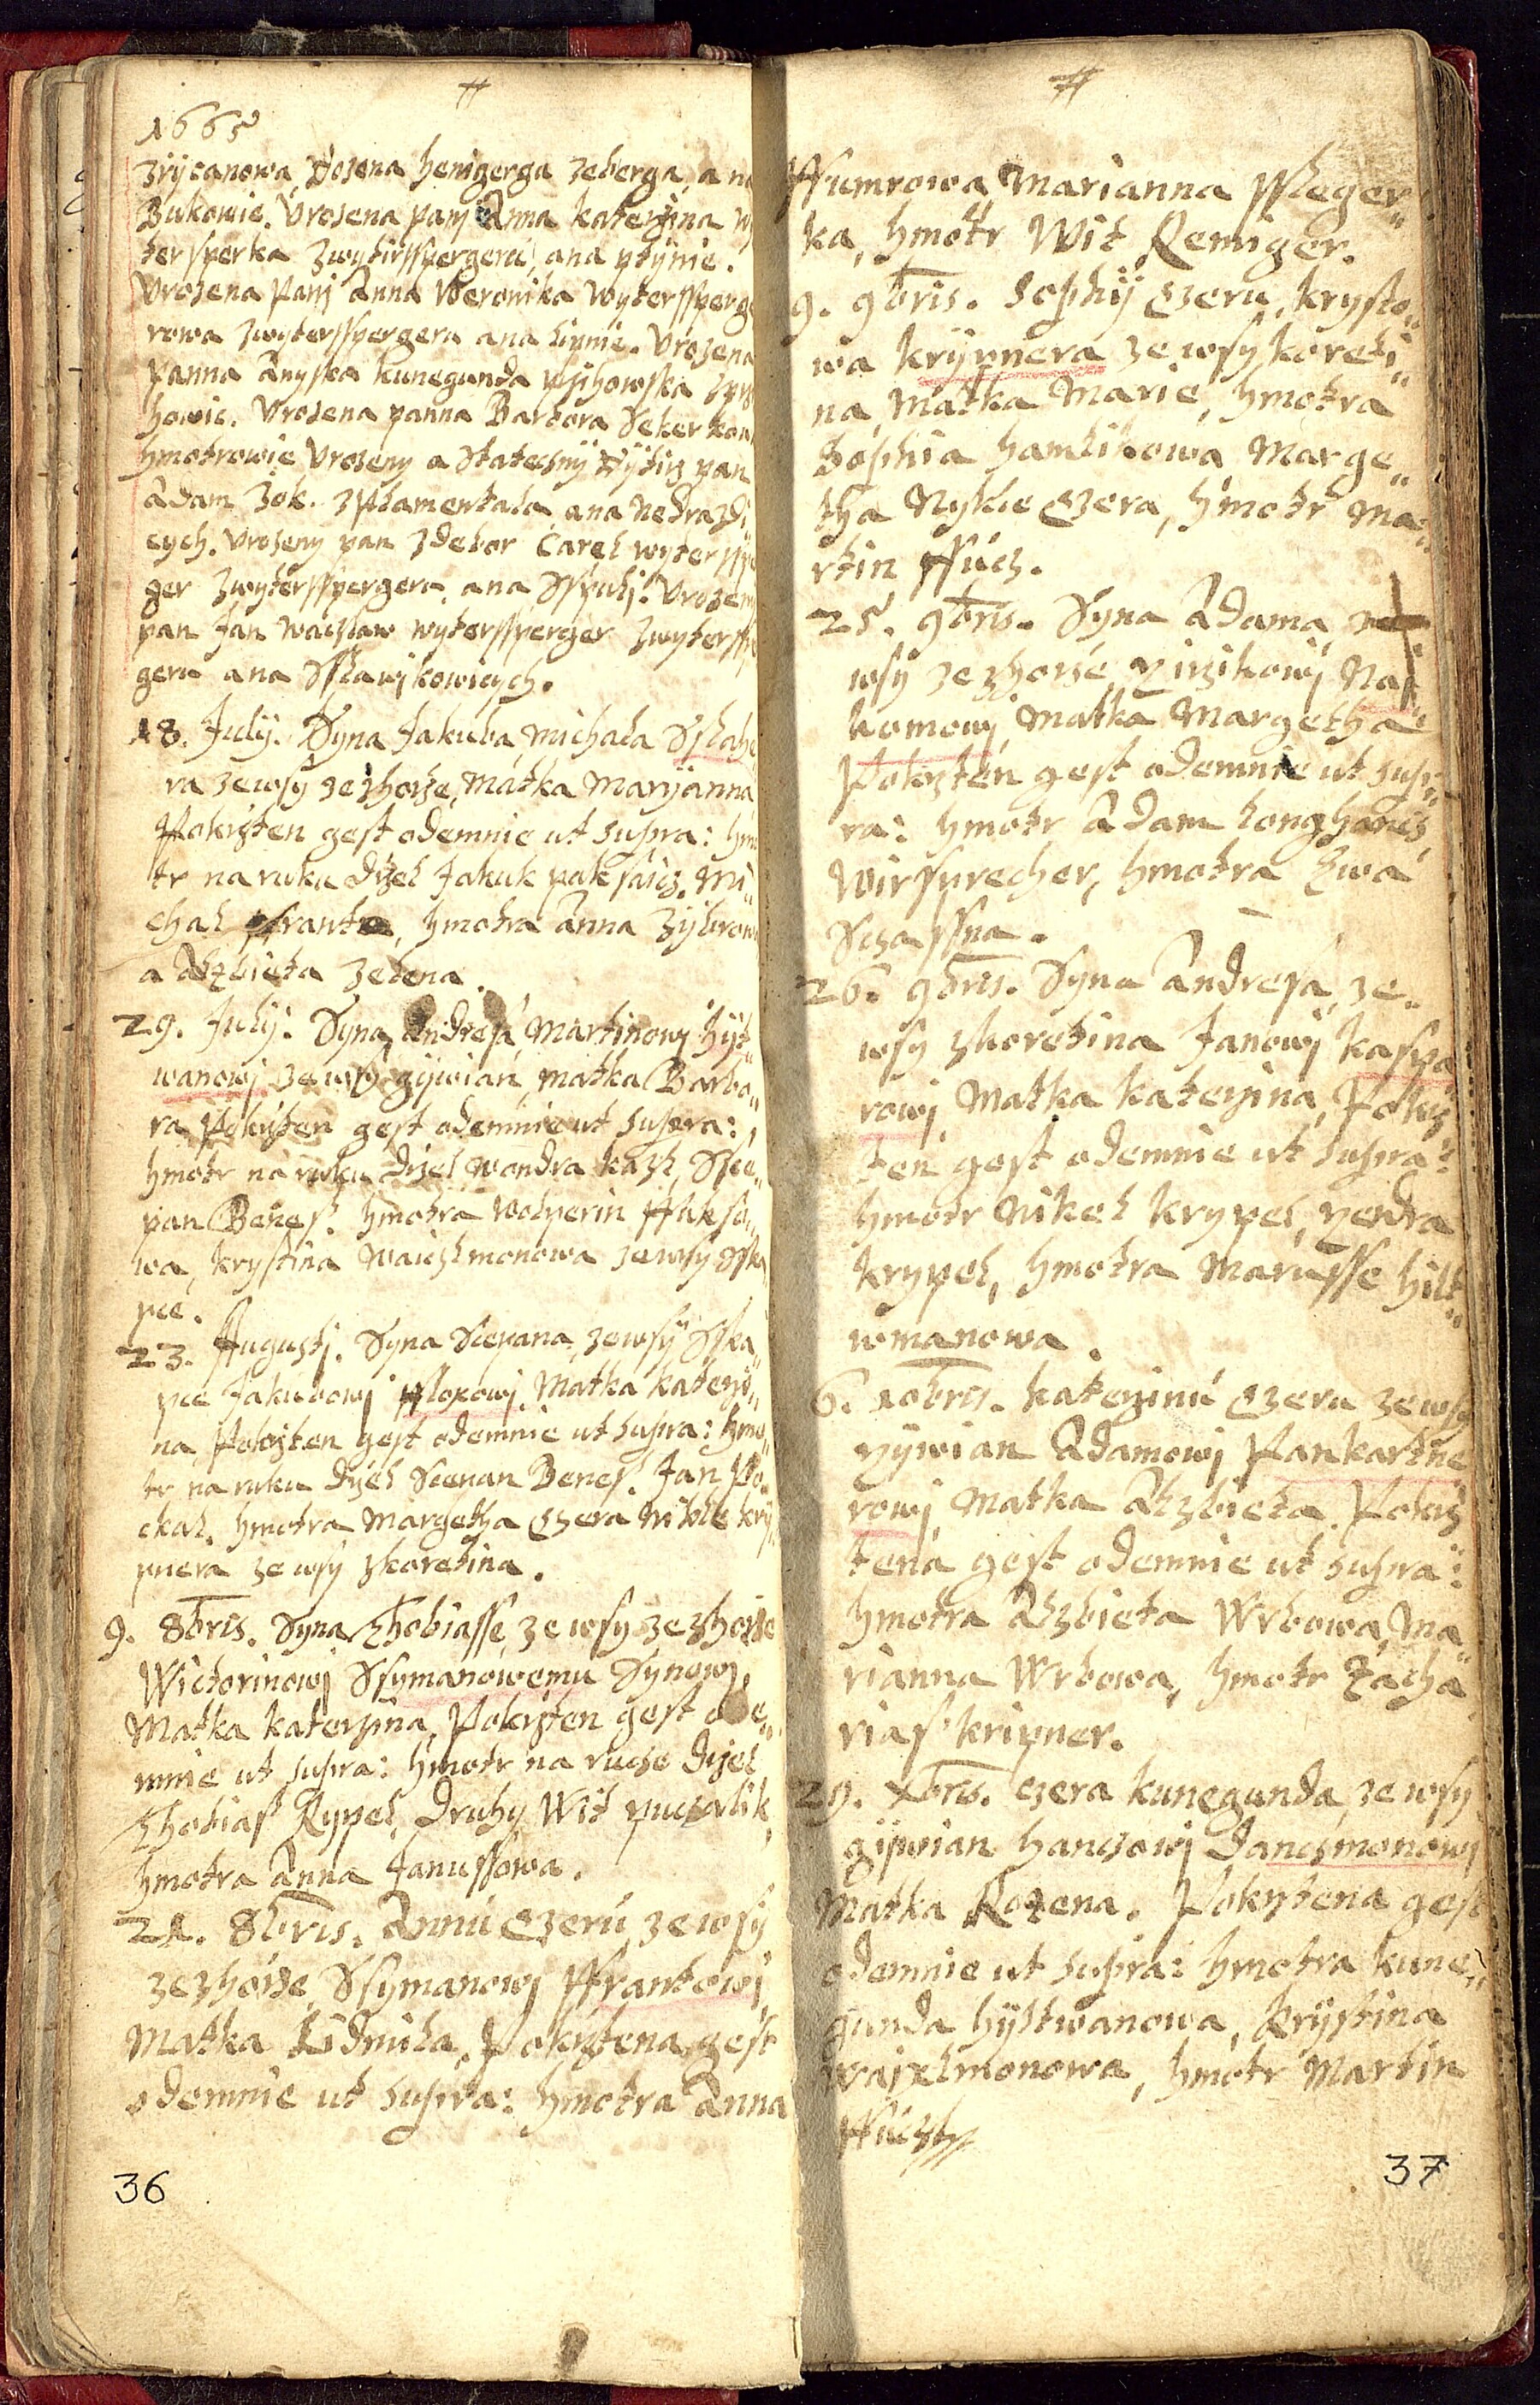 1665
zrÿcanowa, Rozena henigerga zeberga, a na
Bukowie. Vrozena panj Anna katerzina wy
tersperka zwytirsspergeru, ana ptynie.
Vrozena Panj Anna Weronika wyterssperge
rowa zwytersspergeru ana Lipnie. Vrozena
Panna Anyska kunegunda
howic. Vrozena panna Barbora Sekerkow
hmotrowie Vrozeny a Statecznÿ Rÿtirz pan
Adam Zok. ana Nedrazdi
cych. Vrozeny pan Zdebor Carel wyterssper
ger zwytersspergeru, ana Vrozeny
pan Jan waczlaw wyterssperger zwyterssper
geru ana Sslawikowicych.
18. Julÿ. Syna Jakuba, Michala Sslahe
ra zewsy zezhorze, Matka Marÿanna
Pokrzten gest odemnie ut supra: hmo
tr na ruku drzel Jakub Mi„
chal ffrantz, hmotra Anna
a Alzbieta Zelena.
29. Julÿ. Syna Andresa, Martinowj hÿlt„
wanowj zewsy gÿwian, matka Barbo„
ra Pokrzten gest odemnie ut supra:
hmotr na ruku drzel wondra Sste„
pan Benes. hmotra Wolperin ffukso„
wa, krystina waichlmonowa zewsy Sska
pce.
23. Augustj. Syna Scepana, zewsÿ Sska„
pce Jakubowj ffloxowj. Matka Katerzi„
na, Pokrzten gest odemnie ut supra: hmo„
tr na ruku drzel Scepan Benes. Jan Po„
ckal. hmotra Margetha czera Nikole krÿ„
pnera ze wsy zkoretina.
9. 8bris. Syna Thobiasse, ze wsy zezhorze
Wictorinowj Ssymanowemu Synowj.
Matka katerzina, Pokrzten gest ode„
mnie ut supra: hmotr na rucze drzel
Thobias Rypel, Druhy Wit puczalik,
hmotra Anna Janussowa.
21. 8bris. Annu Czeru, zewsÿ
zezhorze, Ssymanowj ffrantowj,
Matka Lidmila, Pokrztena gest
odemnie ut supra: hmotra Anna
36
ffumrowa, Marianna pfleger„
ka, hmotr Wit Remiger.
9. 9bris. Sophij Czeru, krysto„
wa krÿpnera ze wsy koreti„
na, Matka Marie, hmotra
Sophia hamlikowa Marge„
tha Nykle Czera, hmotr Ma„
rtin ffucs.
25. 9bris. Syna Adama,
wsÿ ze zhorze yirzikowj Nas
komowj, Matka Margetha
Pokrzten gest odemnie ut sup„
ra: hmotr Adam Longhans,
Wirsprecher, hmotra Ewa
26. 9bris. Syna Andresa, ze„
wsy zkoretina Janowj kaspa
rowj, Matka katerzina, Pokrz
ten gest odemnie ut supra:
hmotr Nikel krypel, yendra
krypel, hmotra Marusse hilt„
womanowa.
6. 10bris. katerzinu Czeru zewsy
yÿwian Adamowj Pankartne
rowj, Matka Alzbieta. Pokrz
tena gest odemnie ut supra:
hmotra Alzbieta Wrbowa, Ma„
rianna Wrbowa, hmotr Zacha
rias kripner.
29. Xbris. czera kunegunda, ze wsy
gÿwian hansowj Dancsmonowj
Matka Rozena. Pokrztena gest
odemnie ut supra: hmotra kune„
gunda hÿltwanowa, Krÿstina
wajxlmonowa, hmotr Martin
ffucs
37